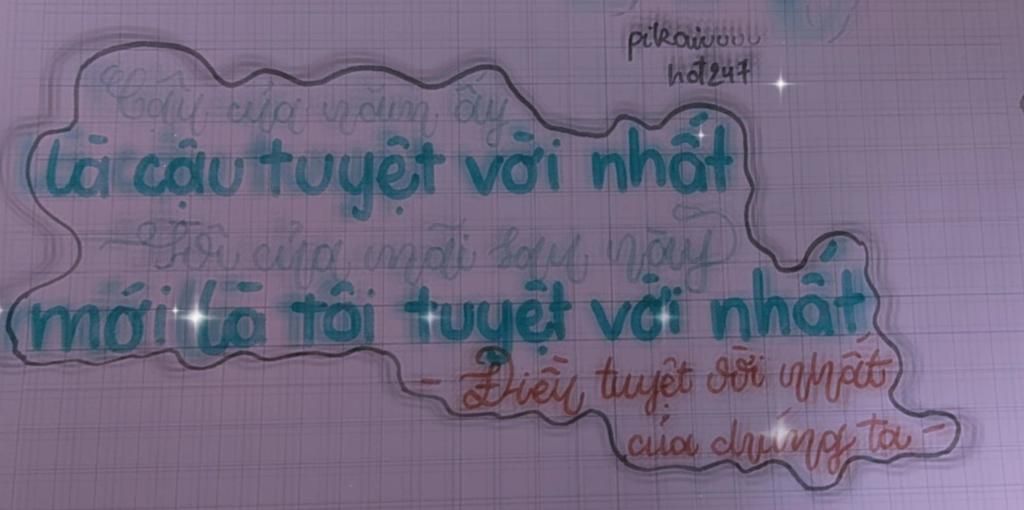 pikaiuuuu
hot247
Cậu của năm ấy
là cậu tuyệt vời nhất
Tôi của mãi sau này
mới là tôi tuyệt vời nhất
- Điều tuyệt vời nhất
của chúng ta -